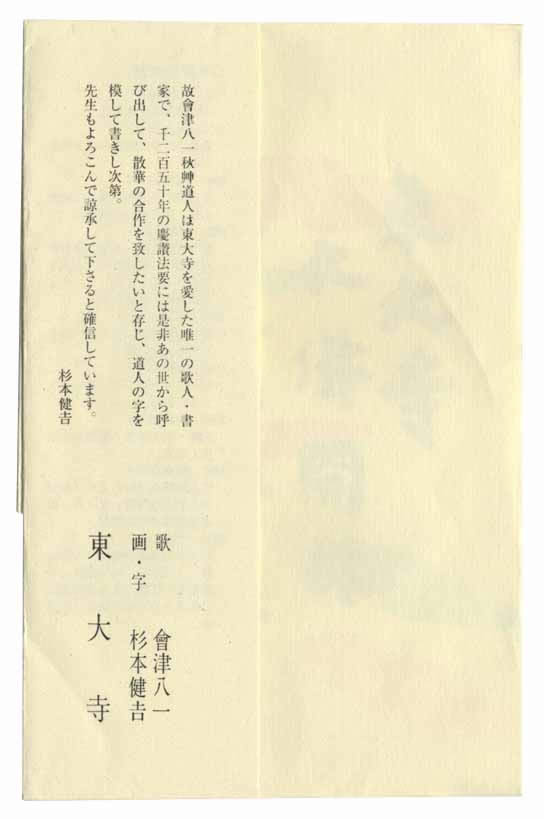 故會津八一秋艸道人は東大寺を愛した唯一の歌人・書
家で、千二百五十年の慶讃法要には是非あの世から呼
び出して、散華の合作を致したいと存じ、道人の字を
模して書きし次第。
先生もよろこんで諒承して下さると確信しています。
杉本健𠮷
歌　會津八一
画・字　杉本健𠮷
東大寺